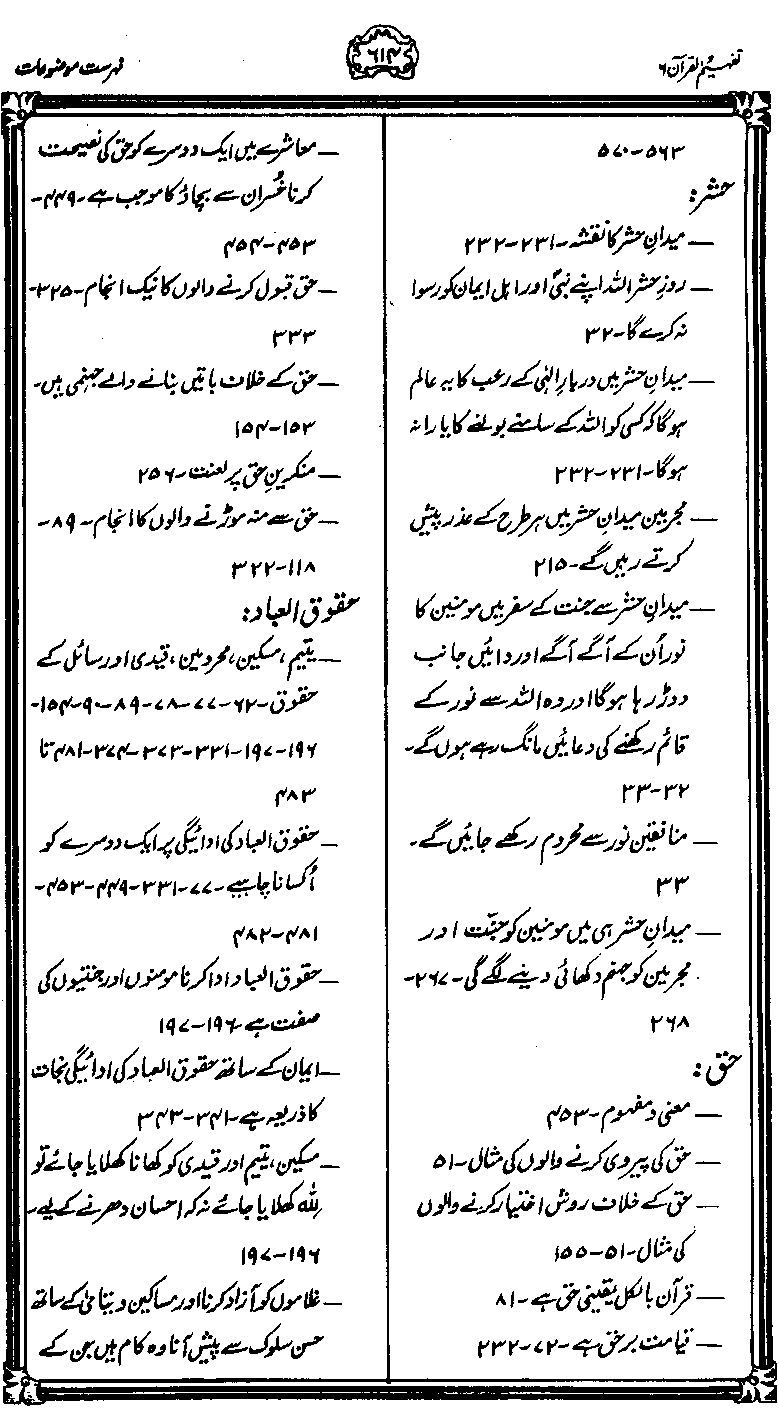 تفہیم القرآن ۶
۶۱۴
فہرست موضوعات
۵۶۳-۵۷۰
حشر:
— میدانِ حشر کا نقشہ-۲۳۱-۲۳۲
— روزِ حشر اللہ اپنے نبیؐ اور اہل ایمان کو رسوا
نہ کرے گا-۳۲
— میدانِ حشر میں دربارِ الٰہی کے رعب کا یہ عالم
ہوگا کہ کسی کو اللہ کے سامنے بولنے کا یارا نہ
ہوگا-۲۳۱-۲۳۲
— مجرمین میدانِ حشر میں ہر طرح کے عذر پیش
کرتے رہیں گے-۲۱۵
— میدانِ حشر سے جنت کے سفر میں مومنین کا
نور اُن کے آگے آگے اور دائیں جانب
دوڑ رہا ہوگا اور وہ اللہ سے نور کے
قائم رکھنے کی دعائیں مانگ رہے ہوں گے-
۳۲-۳۳
— منافقین نور سے محروم رکھے جائیں گے-
۳۳
— میدانِ حشر ہی میں مومنین کو جنّت اور
مجرمین کو جہنم دکھائی دینے لگے گی-۲۶۷-
۲۶۸
حق:
— معنی و مفہوم-۴۵۳
— حق کی پیروی کرنے والوں کی مثال-۵۱
— حق کے خلاف روش اختیار کرنے والوں
کی مثال-۵۱-۱۵۵
— قرآن بالکل یقینی حق ہے-۸۱
— قیامت برحق ہے-۷۲-۲۳۲
— معاشرے میں ایک دوسرے کو حق کی نصیحت
کرنا خُسران سے بچاؤ کا موجب ہے-۴۴۹-
۴۵۳-۴۵۴
— حق قبول کرنے والوں کا نیک انجام-۳۲۵-
۳۳۳
— حق کے خلاف باتیں بنانے والے جہنمی ہیں-
۱۵۳-۱۵۴
— منکرینِ حق پر لعنت-۲۵۶
— حق سے منہ موڑنے والوں کا انجام-۸۹-
۱۱۸-۳۲۲
حقوق العباد:
— یتیم، مسکین، محرومین، قیدی اور سائل کے
حقوق-۶۲-۷۷-۷۸-۸۹-۹۰-۱۵۴-
۱۹۶-۱۹۷-۳۳۱-۳۷۳-۳۷۴-۴۸۱ تا
۴۸۳
— حقوق العباد کی ادائیگی پر ایک دوسرے کو
اُکسانا چاہیے-۷۷-۳۳۱-۴۴۹-۴۵۳-
۴۸۱-۴۸۲
— حقوق العباد ادا کرنا مومنوں اور جنتیوں کی
صفت ہے-۱۹۶-۱۹۷
— ایمان کے ساتھ حقوق العباد کی ادائیگی نجات
کا ذریعہ ہے-۳۴۱-۳۴۳
— مسکین، یتیم اور قیدی کو کھانا کھلایا جائے تو
لِلّٰہ کھلایا جائے نہ کہ احسان دھرنے کے لیے-
۱۹۶-۱۹۷
— غلاموں کو آزاد کرنا اور مساکین و یتامیٰ کے ساتھ
حسن سلوک سے پیش آنا وہ کام ہیں جن کے